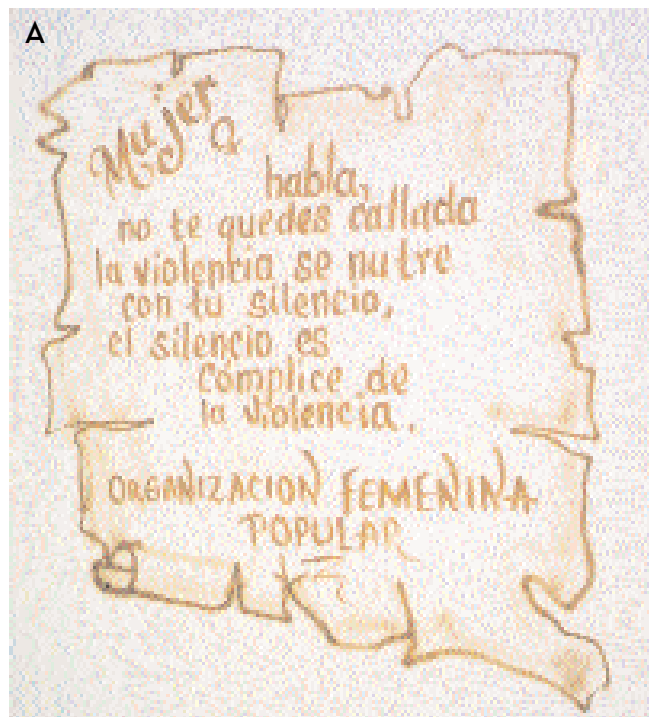 A
Mujer
habla,
no te quedes callada
la violencia se nutre
con tu silencio,
el silencio es
cómplice de
la violencia.
ORGANIZACION FEMENINA
POPULAR